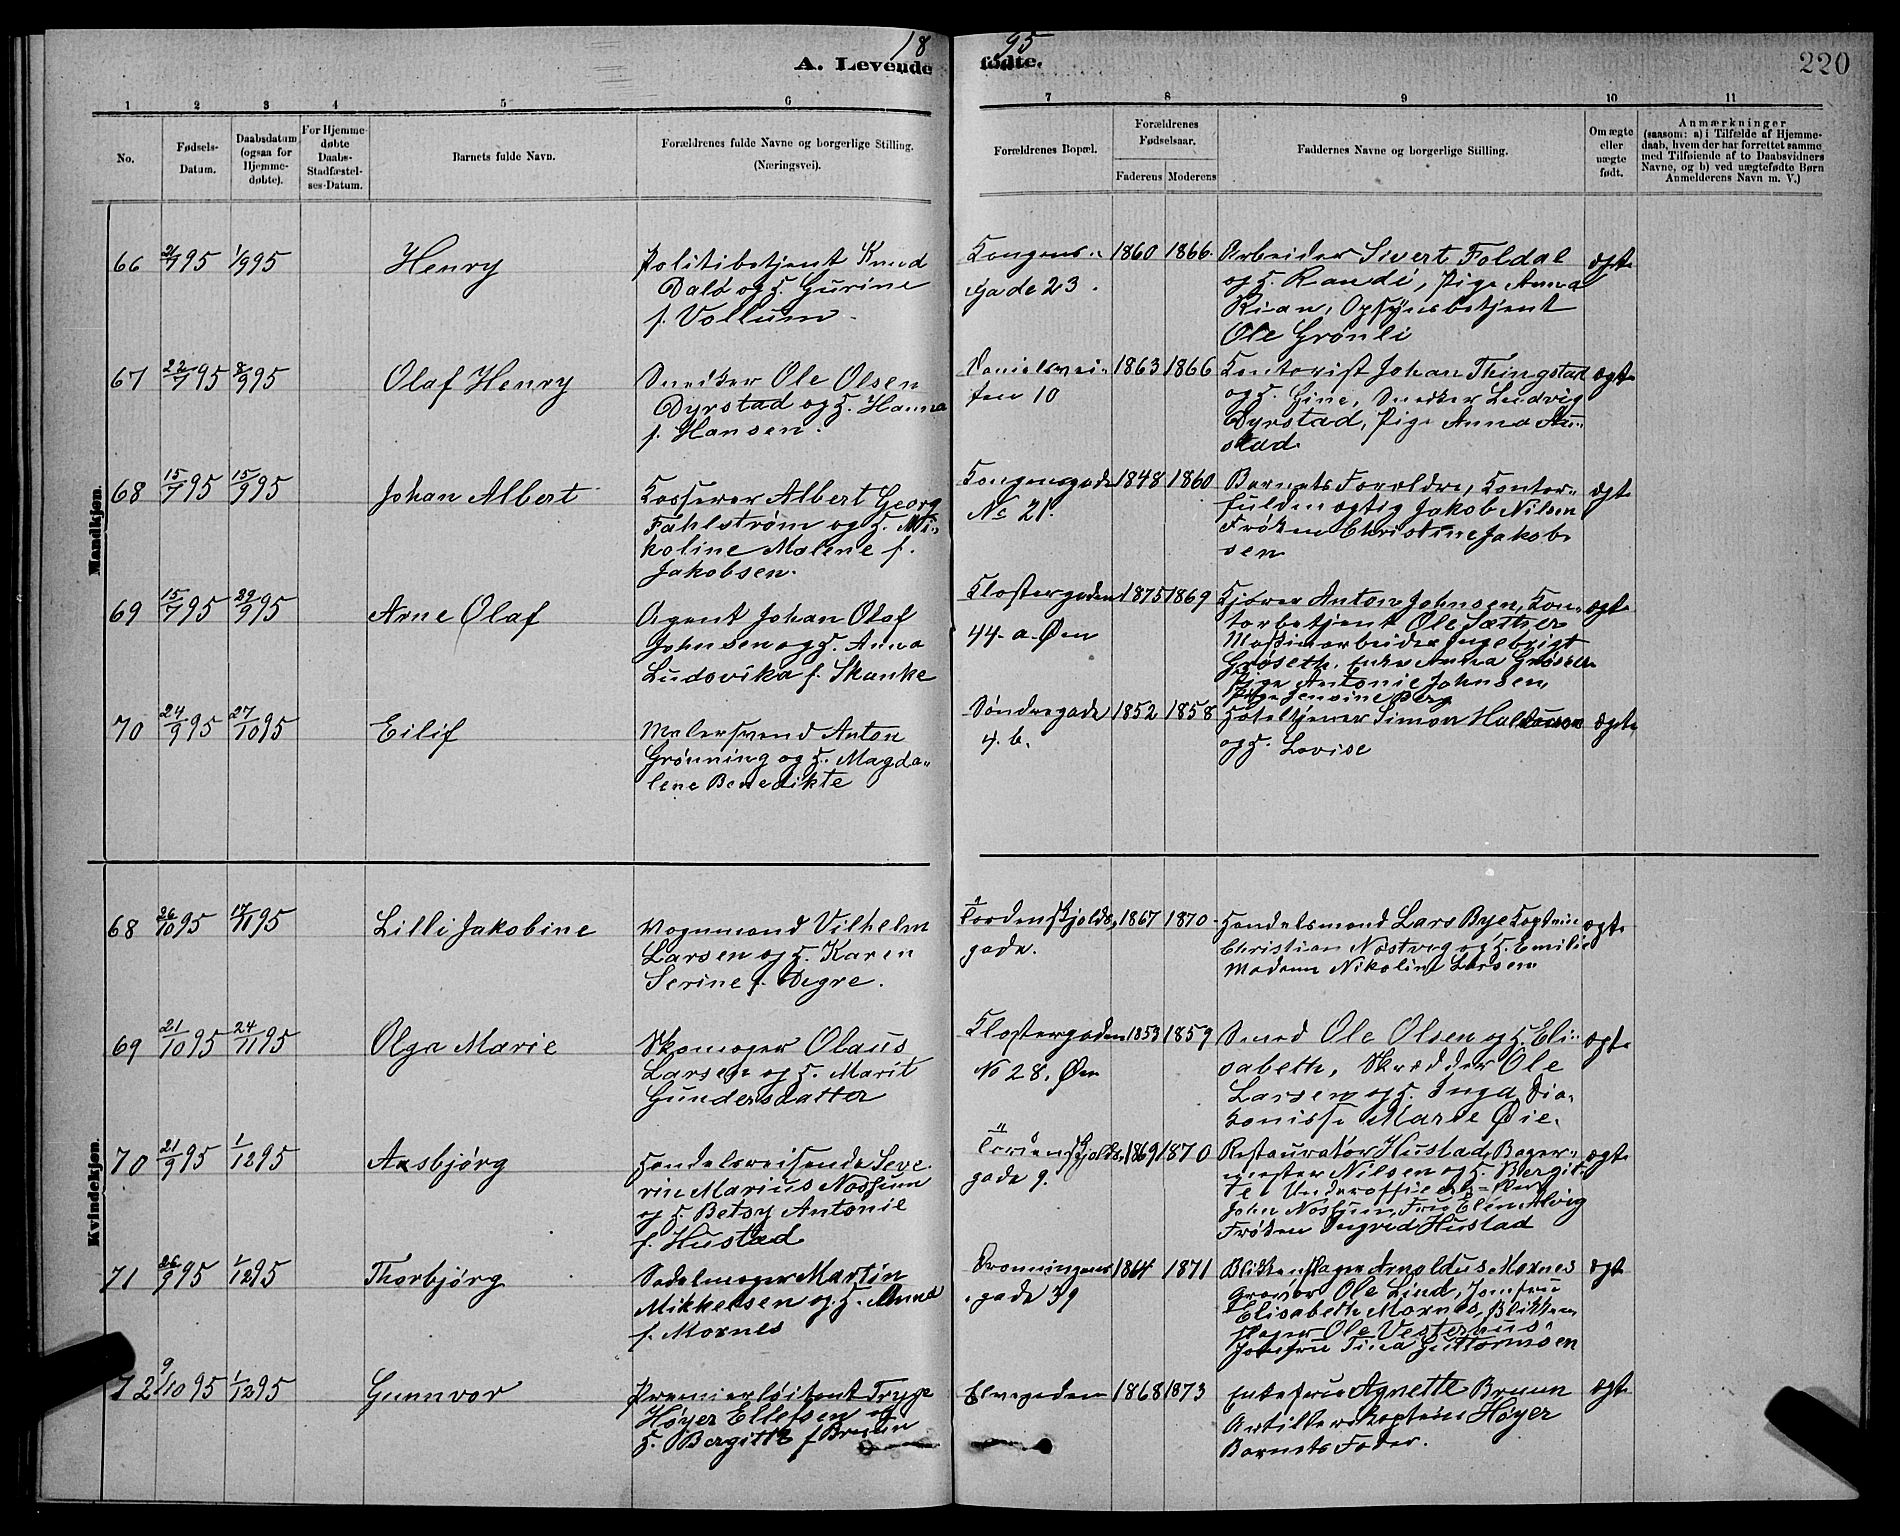 18 95
A. Levende fødte.
220
1 2 3 4 5 6 7 8 9 10 11
No.
Fødsels-
Datum.
Daabsdatum
(ogsaa for
Hjemme-
døbte).
For Hjemme-
døbte
Daabs-
Stadfæstel-
ses-Datum.
Barnets fulde Navn.
Forældrenes fulde Navne og borgerlige Stilling.
(Næringsvei).
Forældrenes Bopæl.
Forældrenes
Fødselsaar.
Faderens Moderens
Faddernes Navne og borgerlige Stilling.
Om ægte
eller
uægte
født.
Anmærkninger
(saasom: a) i Tilfælde af Hjemme-
daab, hvem der har forrettet samme
med Tilføiende af to Daabsvidners
Navne, og b) ved uægtefødte Børn
Anmelderens Navn m. V.)
Mandkjøn.
66 95 1/9 95 Henry
Politibetjent Knud
Dalø og H. Gurine
f. Vollum
Kongens-
gade 23.
1860 1866
Arbeider Sivert Foldal
og H. Randi, Pige Anna
Rian, Opsynsbetjent
Ole Grønli
ægte
67 22/7 95 8/9 95 Olaf Henry
Snedker Ole Olsen
Dyrstad og H. Hanna
f. Hansen.
Danielsvei-
ten 10
1863 1866
Kontorist Johan Thingstad
og H. Gine, Snedker Ludvig
Dyrstad, Pige Anna Au-
stad
ægte
68 15/7 95 15/9 95 Johan Albert
Kasserer Albert Georg
Fahlstrøm og H. Ni-
koline Malene f.
Jakobsen.
Kongensgade
No 21.
1848 1860
Barnets Forældre, Kontor-
fuldmægtig Jakob Nilsen
Frøken Christine Jakob-
sen
ægte
69 15/7 95 29/9 95 Arne Olaf
Agent Johan Olaf
Johnsen og H. Anna
Ludovika f. Skanke
Klostergaden
44. a. Øen
1875 1869
Kjører Anton Johnsen, Kon-
torbetjent Ole Sæther
Maskinarbeider Ingebrigt
Grøseth, Enke Anna Grøseth
Pige Antonie Johnsen,
Pige Jensine Berg
ægte
70 24/9 95 27/10 95 Eilif
Malersvend Anton
Grønning og H. Magda-
lene Benedikte
Søndregade
4. b.
1852 1858
Hoteltjener Simon
og H. Lovise
ægte
Kvindekjøn.
68 26/10 95 17/11 95 Lilli Jakobine
Vognmand Vilhelm
Larsen og H. Karen
Serine f. Degre.
Tordenskjolds
gade.
1867 1870
Handelsmand Lars Bye Kaptein
Christian Næstvig og H. Emilie
Madam Nikoline Larsen
ægte
69 21/10 95 24/11 95 Olga Marie
Skomager Olaus
Larsen og H. Marit
Gundersdatter
Klostergaden
No 28. Øen
1853 1859
Smed Ole Olsen og H. Eli-
sabeth, Skrædder Ole
Larsen og H. Inga Dia-
konisse Marie Øie.
ægte
70 21/9 95 1/12 95 Aasbjørg
Handelsreisende Seve-
rin Marius Nossum
og H. Betsy Antonie
f. Hustad
Tordenskjolds
gade 9.
1869 1870
Restauratør Hustad, Bager-
mester Nilsen og H. Bergit-
te, Underofficerselev
John Nossum, Fru Elen Alvig
Frøken Ingrid Hustad
ægte
71 26/9 95 1/12 95 Thorbjørg
Sadelmager Martin
Mikkelsen og H. Anna
f. Moxnes
Dronningens
gade 39
1864 1871
Blikkenslager Arnoldus Moxnes
Gravør Ole Lind, Jomfru
Elisabeth Moxnes, Blikken-
slager Ole Vesternus
Jomfru Tina Guttormsen
ægte
72 9/10 95 1/12 95 Gunnvor
Premierløitnant Tryge
Høyer Ellefsen og
H. Bergitte f Bruun
Elvegaden
1868 1873
Enkefrue Agnette Bruun
Artillerikaptein Høyer
Barnets Fader.
ægte